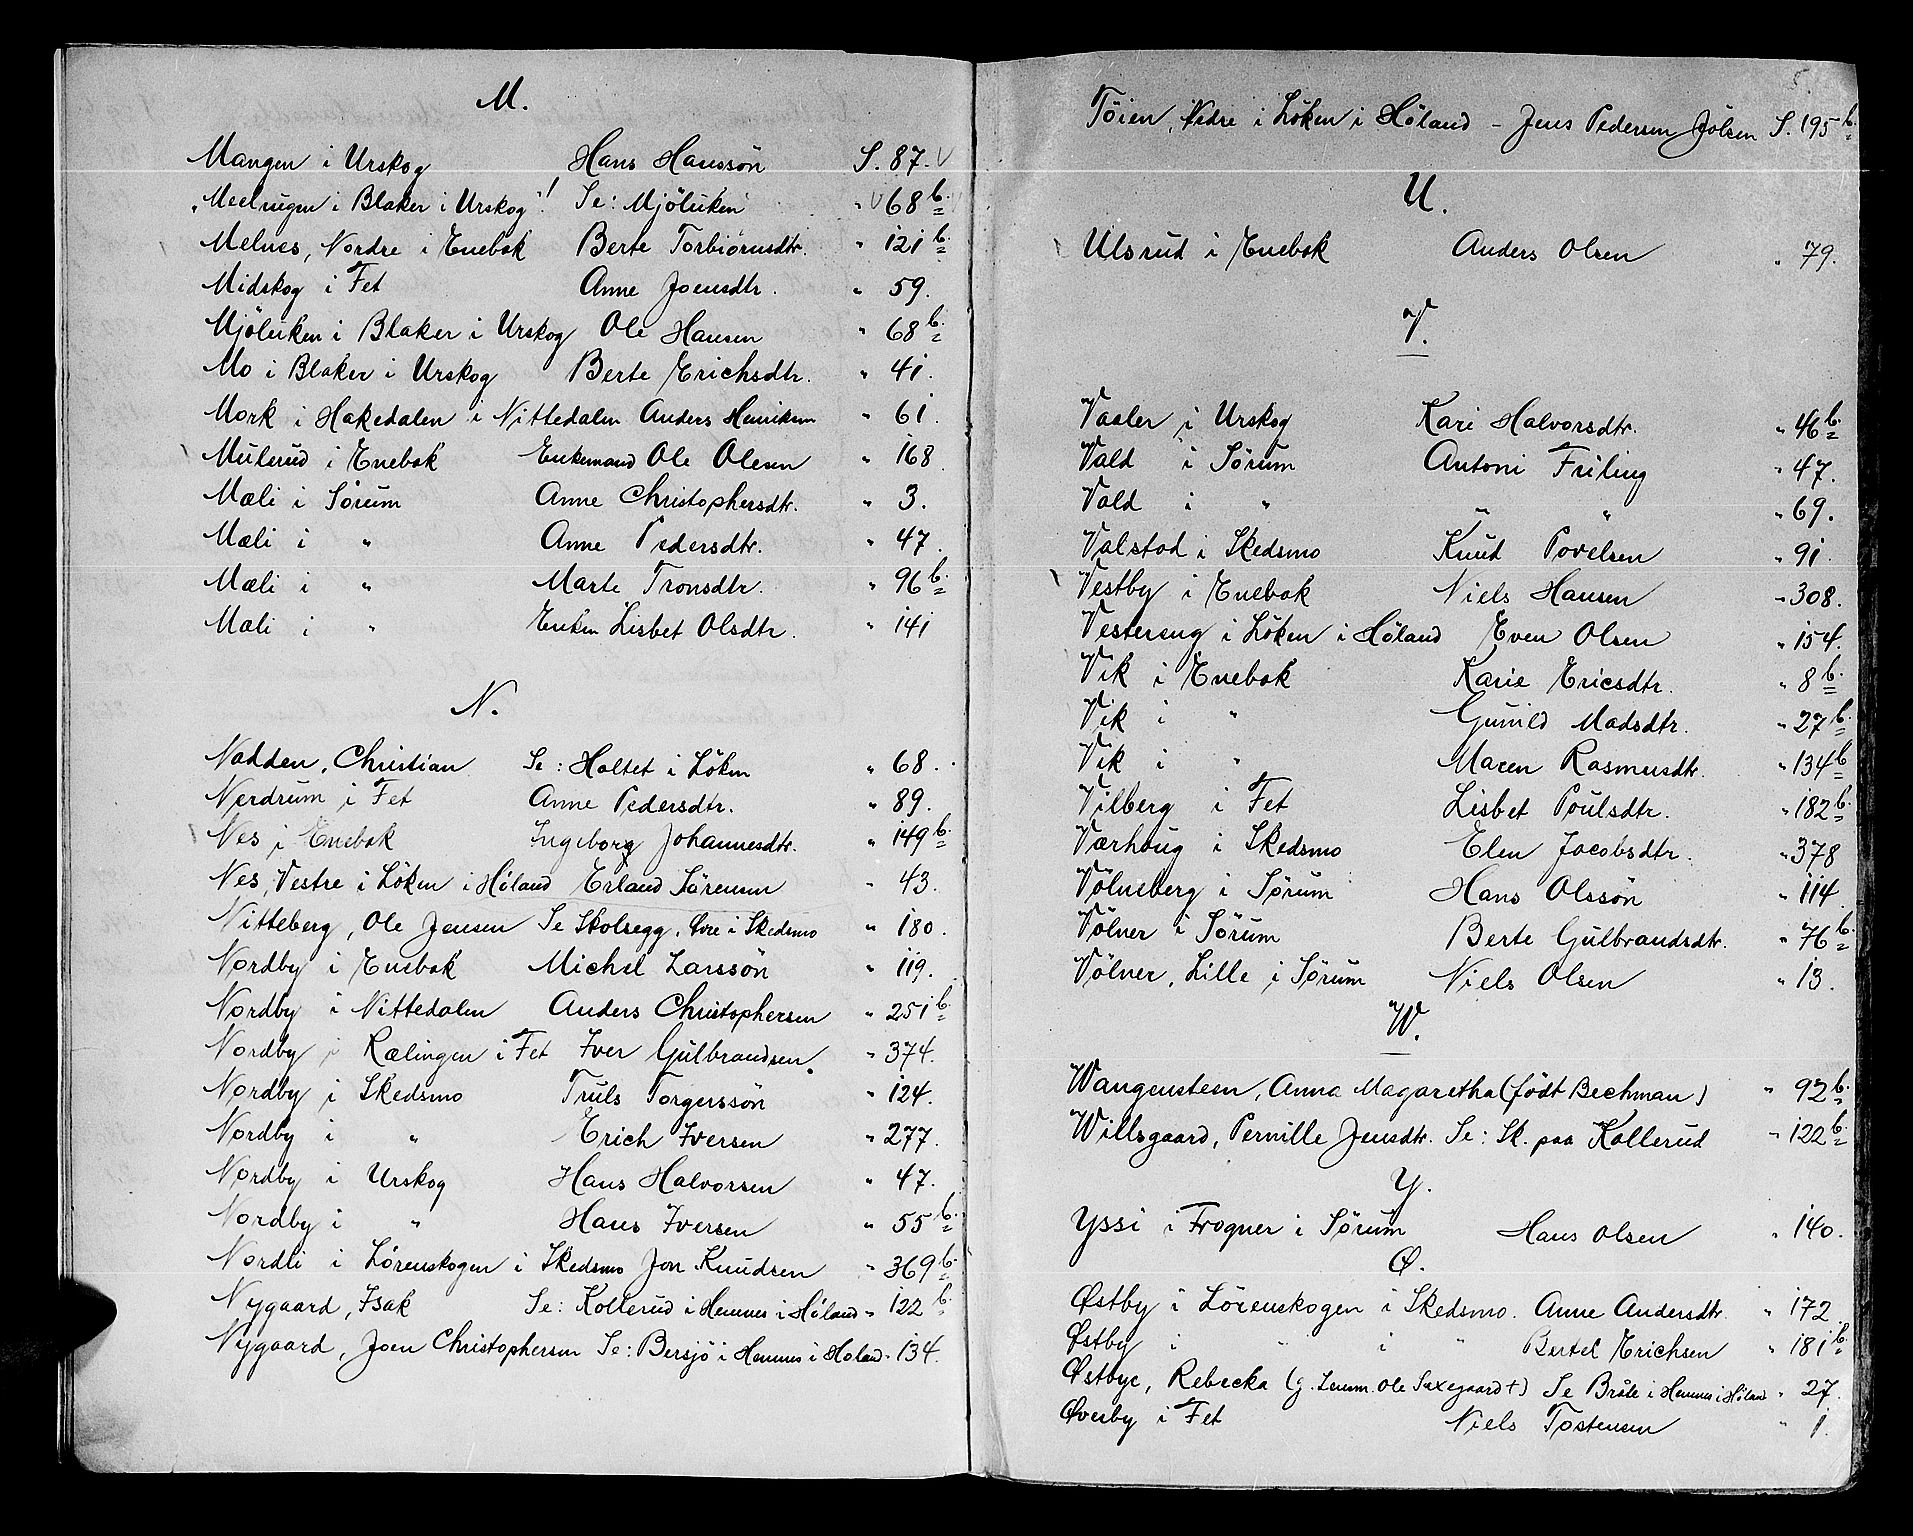 M.
Mangen i Urskog Hans Hanssön S. 87.
"Meelnigen i Blaker i Urskog"! Se: Mjölniken " 68 b.
Melnes, Nordre i Enebak Berte Torbiörnsdtr. " 121 b.
Midskog i Fet Anne Joensdtr. " 59.
Mjölniken i Blaker i Urskog Ole Hansen " 68 b.
Mo i Blaker i Urskog Berte Erichsdtr. " 41.
Mork i Hakedalen i Nittedalen Anders Henriksen " 61.
Mulerud i Enebak Enkemand Ole Olesen " 168
Mæli i Sørum Anne Christophersdtr. " 3.
Mæli i " Anne Pedersdtr. " 47.
Mæli i " Marte Tronsdtr. " 96 b.
Mæli i " Enken Lisbet Olsdtr. " 141
N.
Nadden, Christian Se: Holtet i Löken " 68.
Nerdrum i Fet Anne Pedersdtr. " 89.
Nes i Enebak Ingeborg Johannesdtr. " 149 b.
Nes, Vestre i Löken i Høland Erland Sörensen " 43.
Nitteberg, Ole Jensen Se Skolsegg, Øvre i Skedsmo " 180.
Nordby i Enebak Michel Larssön " 119.
Nordby i Nittedalen Anders Christophersen " 251 b.
Nordby i Rælingen i Fet Iver Gulbrandsen. " 374.
Nordby i Skedsmo Truls Torgerssön " 124.
Nordby i " Erich Iversen " 277.
Nordby i Urskog Hans Halvorsen " 47.
Nordby i " Hans Iversen " 55 b.
Nordli i Lörenskogen i Skedsmo Jon Knudsen " 369 b.
Nygaard, Isak Se: Kollerud i Hemnes i Høland " 122 b.
Nygaard, Joen Christophersen Se: Bersjö i Hemnes i Høland " 134.
5.
Töien, Nedre i Löken i Høland - Jens Pedersen Jölsen S. 195 b.
U.
Ulsrud i Enebak Anders Olsen " 79.
V.
Vaaler i Urskog Kari Halvorsdtr. " 46 b.
Vald i Sørum Antoni Friling " 47.
Vald i " " " " 69.
Valstad i Skedsmo Knud Povelsen " 91.
Vestby i Enebak Niels Hansen " 308.
Vestereng i Löken i Høland Even Olsen " 154.
Vik i Enebak Karie Ericsdtr. " 8 b.
Vik i " Gunild Madsdtr. " 27 b.
Vik i " Maren Rasmusdtr. " 134 b.
Vilberg i Fet Lisbet Poulsdtr. " 182 b.
Værhoug i Skedsmo Elen Jacobsdtr. " 378
Völneberg i Sørum Hans Olssön " 114
Völner i Sørum Berte Gulbrandsdtr. " 76 b.
Völner, Lille i Sørum Niels Olsen " 13.
W.
Wangensteen, Anna Magaretha (födt Bechman) " 92 b.
Willsgaard, Pernille Jensdtr. Se: Sk. paa Kollerud " 122 b.
Y.
Yssi i Frogner i Sørum Hans Olsen " 140.
Ø.
Østby i Lörenskogen i Skedsmo. Anne Andersdtr. " 172
Østby i " i " Bertel Erichsen " 181 b.
Østbye, Rebecka (g. Ole Saxegaard +) Se Bråte i Hemnes i Høland " 27.
Øverby i Fet Niels Tostensen " 1.